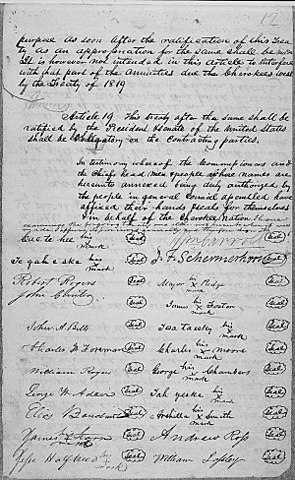 12
purpose as soon after the ratification of this Trea
ty as an appropriation for the same shall be made
It is however not intended in this article to interfere
with that part of the annuities due the Cherokees west
by the Treaty of 1819
Article 19. This treaty after the same shall be
ratified by the President & Senate of the United States
shall be obligatory on the contracting parties.
In testimony whereof the Commissioners and
the Chiefs head men & people whose names are
hereunto annexed being duly authorized by
the people in general Council assembled have
affixed their hands & seals for themselves
& in behalf of the Cherokee Nation
Cae te hee his x mark Seal
Seal
Te gah e ske his x mark Seal J. F. Schermerhorn Seal
Robert Rogers Seal Major his x mark Ridge Seal
John Gunter Seal James his x mark Foster Seal
John A Bell Seal Tesa ta esky his x mark Seal
Charles F Foreman Seal Charles his x mark Moore Seal
William Rogers Seal George his x mark Chambers Seal
George W. Adair Seal Tah yeske his x mark Seal
Elias Boudinot Seal Archilla his x mark Smith Seal
James his x mark Starr Seal Andrew Ross Seal
Jesse Halfbreed his x mark Seal William Lassley Seal